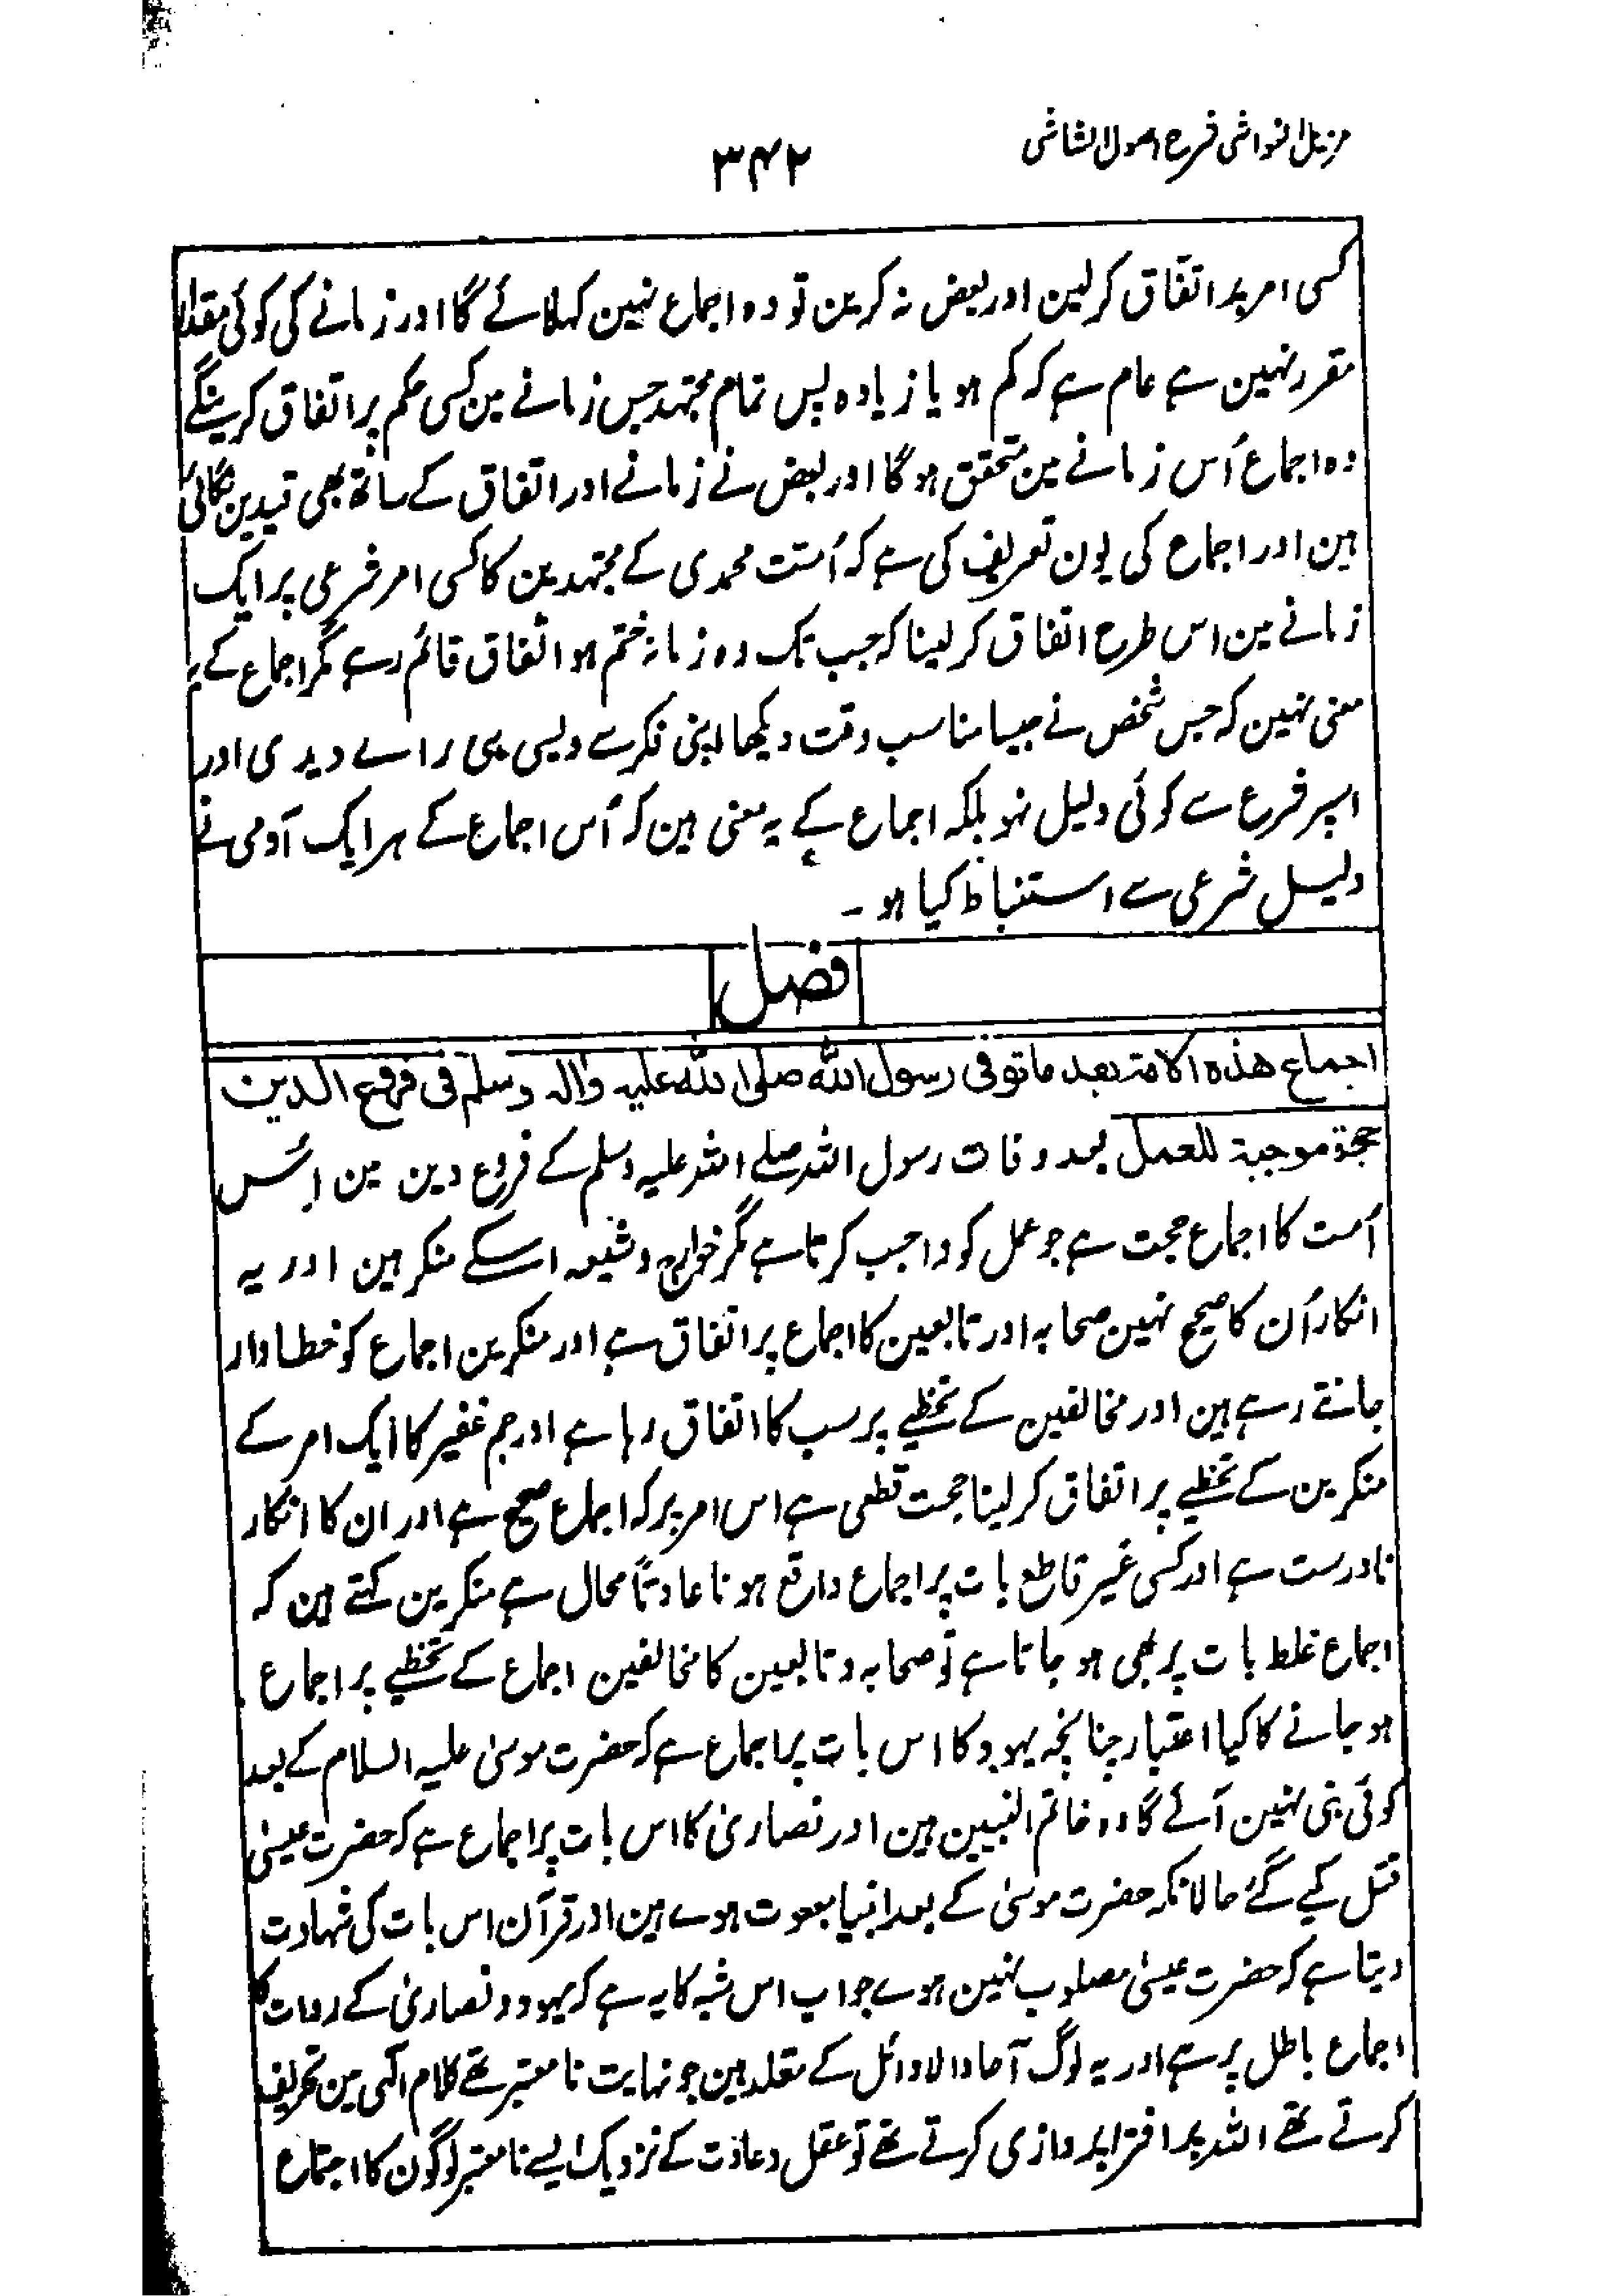 مزیل الغواشی شرح اصول الشاشی
۳۴۲
کسی امر پر اتفاق کرلین اور بعض نہ کرین تو وہ اجماع نہین کہلائے گا اور زمانے کی کوئی مقدار
مقرر نہین ہے عام ہے کہ کم ہو یا زیادہ پس تمام مجتہد جس زمانے مین کسی حکم پر اتفاق کرینگے
وہ اجماع اُس زمانے مین متحقق ہوگا اور بعض نے زمانے اور اتفاق کے ساتھ بھی قیدین لگائی
ہین اور اجماع کی یون تعریف کی ہے کہ اُمت محمدی کے مجتہدین کا کسی امر شرعی پر ایک
زمانے مین اس طرح اتفاق کرلینا کہ جب تک وہ زمانہ ختم ہو اتفاق قائم رہے مگر اجماع کے یہ
معنی نہین کہ جس شخص نے جیسا مناسب وقت دیکھا اپنی فکر سے ویسی ہی راے دیدی اور
اسپر شرع سے کوئی دلیل نہو بلکہ اجماع کے یہ معنی ہین کہ اُس اجماع کے ہر ایک آدمی نے
دلیل شرعی سے استنباط کیا ہو۔
فصل
اجماع هذه الامة بعد ما توفی رسول الله صلی الله علیہ واٰلہ وسلم فی فروع الدین
حجة موجبة للعمل بعد وفات رسول اللہ صلے اللہ علیہ وسلم کے فروع دین مین اِس
اُمت کا اجماع حجت ہے جو عمل کو واجب کرتا ہے مگر خوارج و شیعہ اسکے منکر ہین اور یہ
انکار اُن کا صحیح نہین صحابہ اور تابعین کا اجماع پر اتفاق ہے اور منکرین اجماع کو خطاوار
جانتے رہے ہین اور مخالفین کے تخطیے پر سب کا اتفاق رہا ہے اور جم غفیر کا ایک امر کے
منکرین کے تخطیے پر اتفاق کرلینا حجت قطعی ہے اس امر پر کہ اجماع صحیح ہے اور ان کا انکار
نادرست ہے اور کسی غیر قاطع بات پر اجماع واقع ہونا عادتاً محال ہے منکرین کہتے ہین کہ
اجماع غلط بات پر بھی ہو جاتا ہے تو صحابہ و تابعین کا مخالفین اجماع کے تخطیے پر اجماع
ہو جانے کا کیا اعتبار چنانچہ یہود کا اس بات پر اجماع ہے کہ حضرت موسیٰ علیہ السلام کے بعد
کوئی نبی نہین آئے گا وہ خاتم النبیین ہین اور نصاریٰ کا اس بات پر اجماع ہے کہ حضرت عیسیٰ
قتل کیے گئے حالانکہ حضرت موسیٰ کے بعد انبیا مبعوث ہوے ہین اور قرآن اس بات کی شہادت
دیتا ہے کہ حضرت عیسیٰ مصلوب نہین ہوے جواب اس شبہ کا یہ ہے کہ یہود و نصاریٰ کے روات کا
اجماع باطل پر ہے اور یہ لوگ آحاد الاوائل کے مقلد ہین جو نہایت نامعتبر تھے کلام الٰہی مین تحریف
کرتے تھے اللہ پر افترا پردازی کرتے تھے تو عقل و عادت کے نزدیک ایسے نامعتبر لوگون کا اجتماع